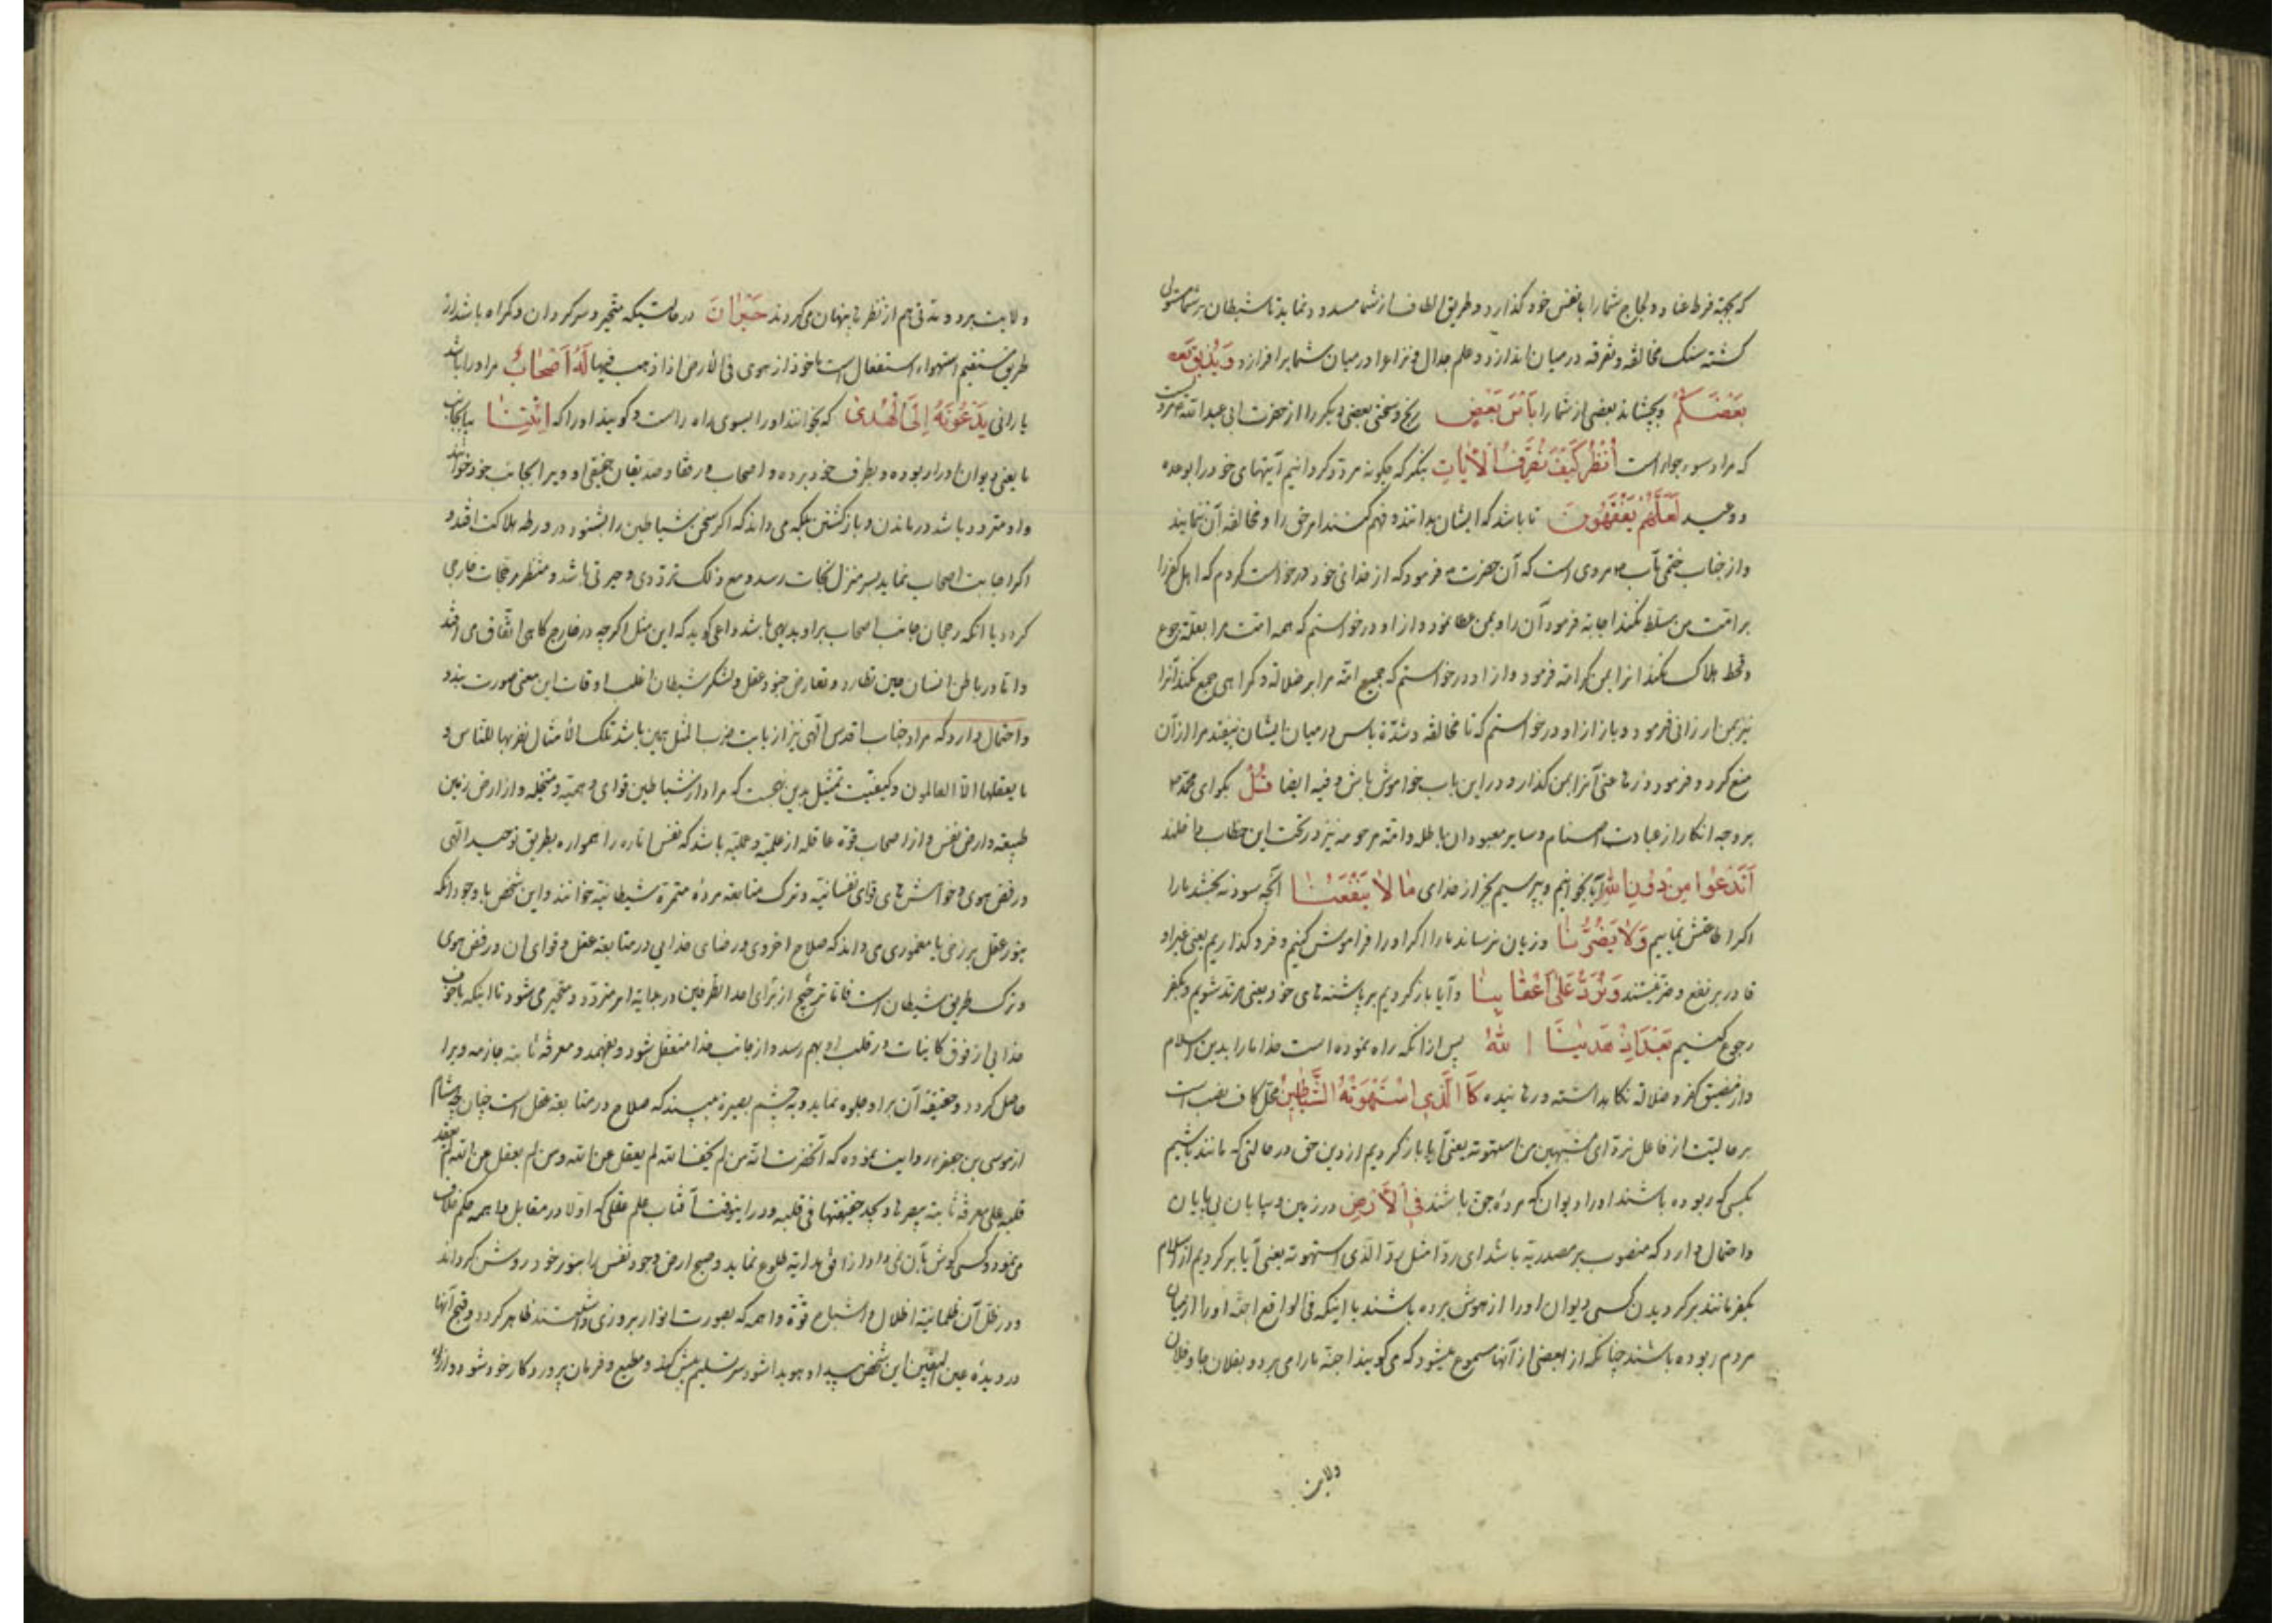 که بجهة فرط عناد و لجاج شما را با نفس خود گذارد و طریق الطاف از شما مسدود نماید تا شیطان بر شما مستولی
گشته سنک مخالفه و تفرقه در میان اندازد و علم جدال و نزاع را در میان شما برافرازد وَیُذیقَ
بَعْضَکُمْ و بچشاند بعضی از شما را بَأْسَ بَعْضٍ رنج و سختی بعضی دیگر را از حضرت ابی عبد الله مرویست
که مراد سوء جوار است اُنْظُرْ کَیْفَ نُصَرِّفُ الْآیاتِ بنگر که چگونه مردد گردانیم آیتهای خود را بوعده
و وعید لَعَلَّهُمْ یَفْقَهُونَ تا باشد که ایشان بدانند و فهم کنند امر حق را و مخالفه آن ننمایند
و از جناب ختمی مآب مروی است که آن حضرت فرمود که از خدای خود درخواست کردم که اهل کفر را
بر امت من مسلط نکند اجابه فرمود آن را و بمن عطا نمود و از او درخواستم که همه امت مرا بعلة جوع
و قحط هلاک نکند انرا بمن کرامة فرمود و از او درخواستم که جمیع امة مرا بر ضلالة و گمراهی جمع نکند آنرا
نیز بمن ارزانی فرمود و باز از او درخواستم که تا مخالفه و شدة باس در میان ایشان نیفتد مرا از آن
منع کرد و فرمود این باب خاموش باش و فیه ایضا قُلْ بگو ای محمد
بر وجه انکار از عبادت اصنام و سایر معبودان باطل و امة مرحومه نیز در تحت این خطاب داخلند
اَنَدْعُوا مِنْ دُونِ اللهِ آیا بخوانیم و بپرستیم بجز از خدای مٰا لاٰ یَنْفَعُنٰا آنچه سود نه بخشد ما را
اگر اطاعتش نماییم وَلاٰ یَضُرُّنٰا و زیان نرساند ما را اگر او را فراموش کنیم و فرو گذاریم یعنی غیر او
قادر بر نفع و ضر نیستند وَنُرَدُّ عَلیٰ اَعْقٰابِنٰا و آیا باز گردیم بر پاشنه های خود یعنی مرتد شویم و بکفر
رجوع کنیم بَعْدَ اِذْ هَدٰینَا اللهُ پس از آنکه راه نموده است خدا ما را بدین اسلام
و از مضیق کفر و ضلالة نگاه داشته و رهانیده کَالَّذِی اسْتَهْوَتْهُ الشَّیٰاطِینُ محل کاف نصب است
بر حالیت از فاعل نرد ای مشبهین من استهوته یعنی آیا باز گردیم از دین حق در حالتی که مانند باشیم
بکسی که ربوده باشند او را دیوان که مرده جن باشند فِی الْاَرْضِ در زمین و بیابان بی پایان
و احتمال دارد که منصوب بر مصدریه باشد ای ردا مثل رد الذی استهوته یعنی آیا برگردیم از اسلام
بکفر مانند برگردیدن کسی دیوان او را از هوش برده باشند با اینکه فی الواقع اجنه او را از میان
مردم ربوده باشند چنانکه از بعضی از آنها مسموع میشود که می گویند اجنه ما را می برد و بفلان جا و فلان
ولایت
ولایت برد و مدتی هم از نظرها پنهان می گردند حَیْرٰانَ در حالتیکه متحیر و سرگردان و گمراه باشد از
طریق مستقیم استهواء استفعال است ماخوذ از هوی فی الارض اذا ذهب فیها لَهُ اَصْحٰابٌ مر او را باشد
یارانی یَدْعُونَهُ اِلَی الْهُدیٰ که بخوانند او را بسوی راه راست و گویند او را که اِئْتِنٰا بیا بجانب
ما یعنی دیوان او را ربوده و بطرف خود برده و اصحاب و رفقا و صدیقان حقیقی او ویرا بجانب خود خوانند
و او متردد باشد در ماندن و بازگشتن بلکه می داند که اگر سخن شیاطین را بشنود در ورطه هلاکت افتد و
اگر اجابت اصحاب نماید بسر منزل نجات رسد و مع ذلک ترددی و حیرتی باشد و منتظر مرجحات خارجی
گردد با آنکه رجحان جانب اصحاب بر او بدیهی باشد داعی گوید که این مثل اگر چه در خارج گاهی اتفاق می افتد
و اما در باطن انسان حین تطارد و تعارض جنود عقل و لشکر شیطان اغلب اوقات این معنی صورت بندد
و احتمال دارد که مراد جناب اقدس الهی نیز از بابت ضرب المثل همین باشد تلک الامثال نضربها للناس و
ما یعقلها الا العالمون و کیفیت تمثیل بدین نهجست که مراد از شیاطین قوای وهمیه و متخیله و از ارض زمین
طبیعة و ارض نفس و از اصحاب قوه عاقله از علمیه و عملیه باشد که نفس اماره را همواره بطریق توحید الهی
و رفض هوی و خواهش های قوای نفسانیة و ترک متابعه مرده متمرده شیطانیة خوانند و این شخص با وجود آنکه
بنور عقل برزخی یا معموری می داند که صلاح اخروی و رضای خدایی در متابعة عقل و قوای آن و رفض هوی
و ترک طریق شیطان است فاما ترجیح از برای احد الطرفین در بدایة امر متردد و متحیر می شود تا اینکه باخود
خدایی از فوق کاینات در قلب او بهم رسد و از جانب خدا منفعل شود و بفهمد و معرفة ثابته جازمه ویرا
حاصل گردد و حقیقة آن بر او جلوه نماید و به چشم بصیرة ببیند که صلاح در متابعة عقل است چنان هشام
از موسی بن جعفر روایت نموده که آنحضرت انه من لم یخف الله لم یعقل عن الله و من لم یعقل عن الله لم یعقد
قلبه علی معرفة ثابتة یبصرها و یجد حقیقتها فی قلبه و در اینوقت آفتاب علم عقلی که اولا در مقابل واهمه حکم خلاف
می نمود و کسی گوش بآن نمی داد از افق هدایة طلوع نماید و صبح ارض وجود نفس را بنور خود روشن گرداند
و در ظل آن ظلمانیة اظلال و اشباح قوة واهمه که بصورت انوار بروزی داشتند ظاهر گردد و قبح آنها
در دیده عین الیقین این شخص پیدا و هویدا شود سر تسلیم پیش کند و مطیع و فرمان پروردگار خود شود و از راه